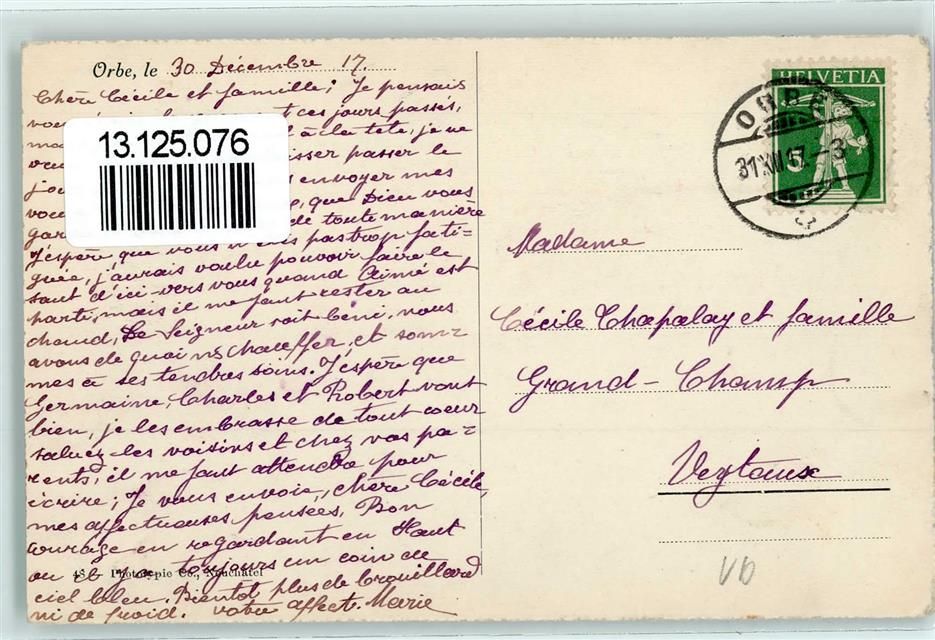 Orbe, le 30 Décembre 17.
Chère Cécile et famille; Je pensais
vous ces jours passés,
à la tête, je ne
laisser passer le
envoyer mes
que Dieu vous
de toute manière
J'espère que vous n'êtes pas trop fati-
guée, j'aurais voulu pouvoir faire le
saut d'ici-vers vous quand Aimé est
parti, mais il me faut rester au
chaud, Le Seigneur soit béni, nous
avons de quoi ns chauffer, et som-
mes à ses tendres soins. J'espère que
Germaine, Charles et Robert vont
bien, je les embrasse de tout coeur
saluez les voisins et chez vos pa-
rents, il me faut attendre pour
écrire; Je vous envoie, chère Cécile,
mes affectueuses pensées, Bon
courage en regardant en Haut
où il y a toujours un coin de
ciel bleu. Bientôt plus de brouillard
ni de froid. votre affect. Marie
Phototypie Co., Neuchâtel
13.125.076
HELVETIA
5
ORBE
31 XII 17 - 3
Madame
Cécile Chapalay et famille
Grand-Champ
Veytaux
VB